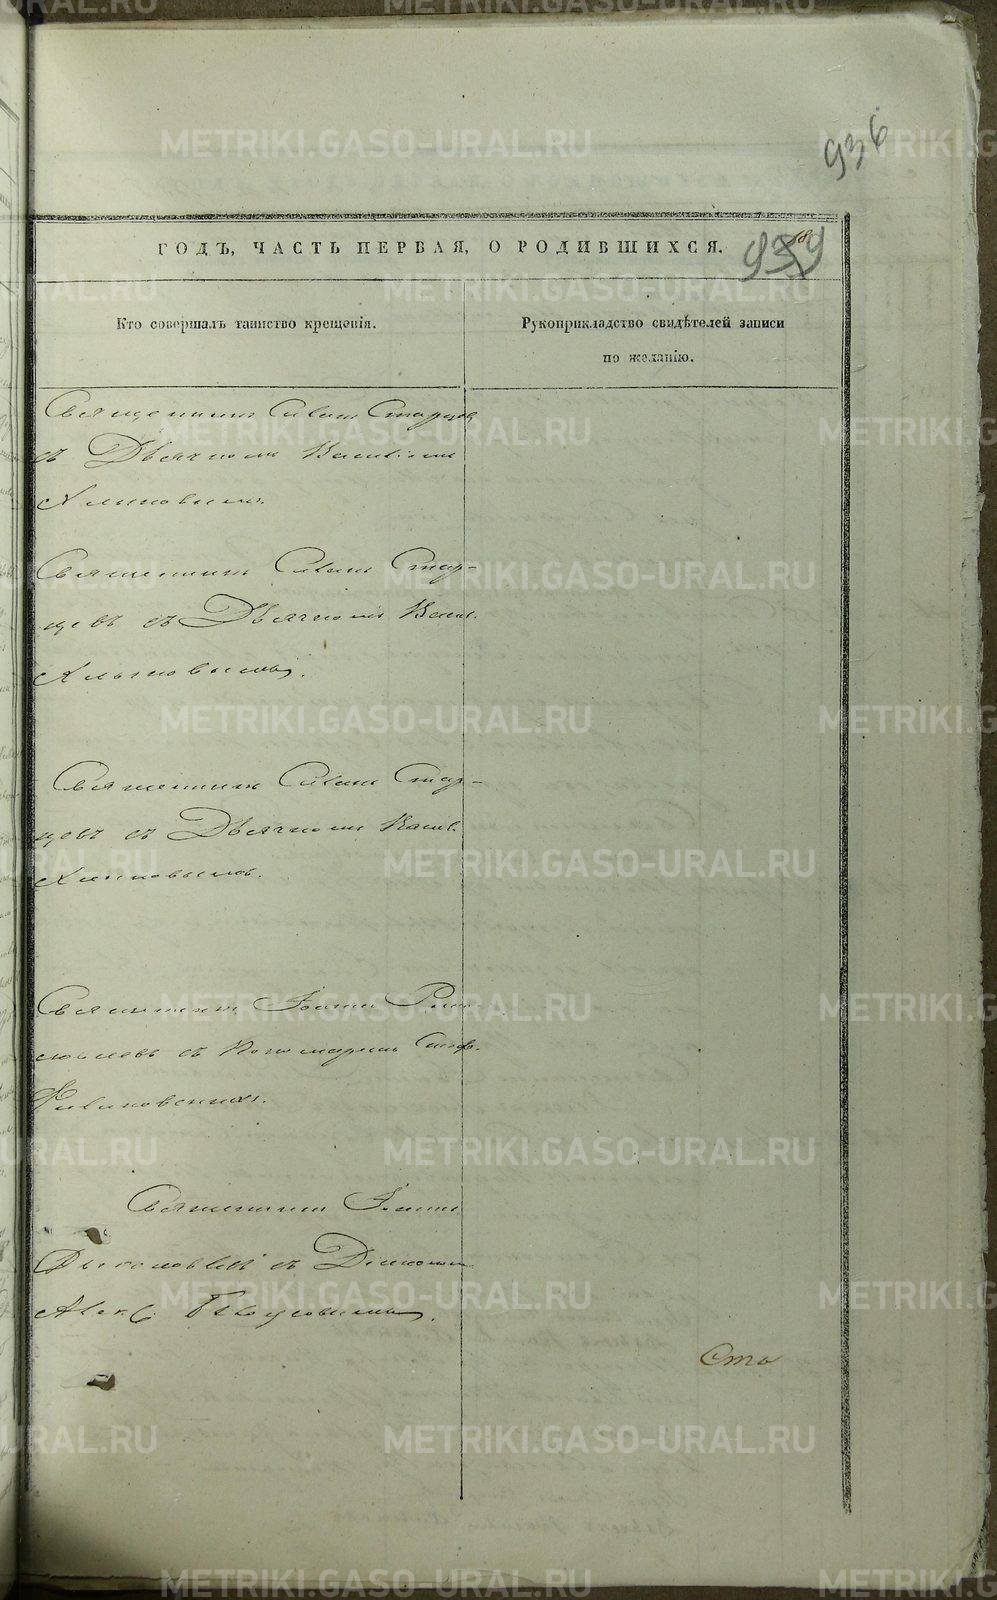 936
ГОДЪ, ЧАСТЬ ПЕРВАЯ, О РОДИВШИХСЯ.
939
Кто совершалъ таинство крещенія.
Рукоприкладство свидѣтелей записи
по желанію.
Священникъ Симеонъ Старцевъ
съ Дьячкомъ Василіемъ
Хлыновымъ.
Священникъ Симеонъ Стар-
цевъ съ Дьячкомъ Васил.
Хлыновымъ.
Священникъ Симеонъ Стар-
цевъ съ Дьячкомъ Васил.
Хлыновымъ.
Священникъ Іоаннъ
съ Пономаремъ Стеф.
Священникъ Іоаннъ
съ Діакономъ
Алекс.
Сто
METRIKI.GASO-URAL.RU